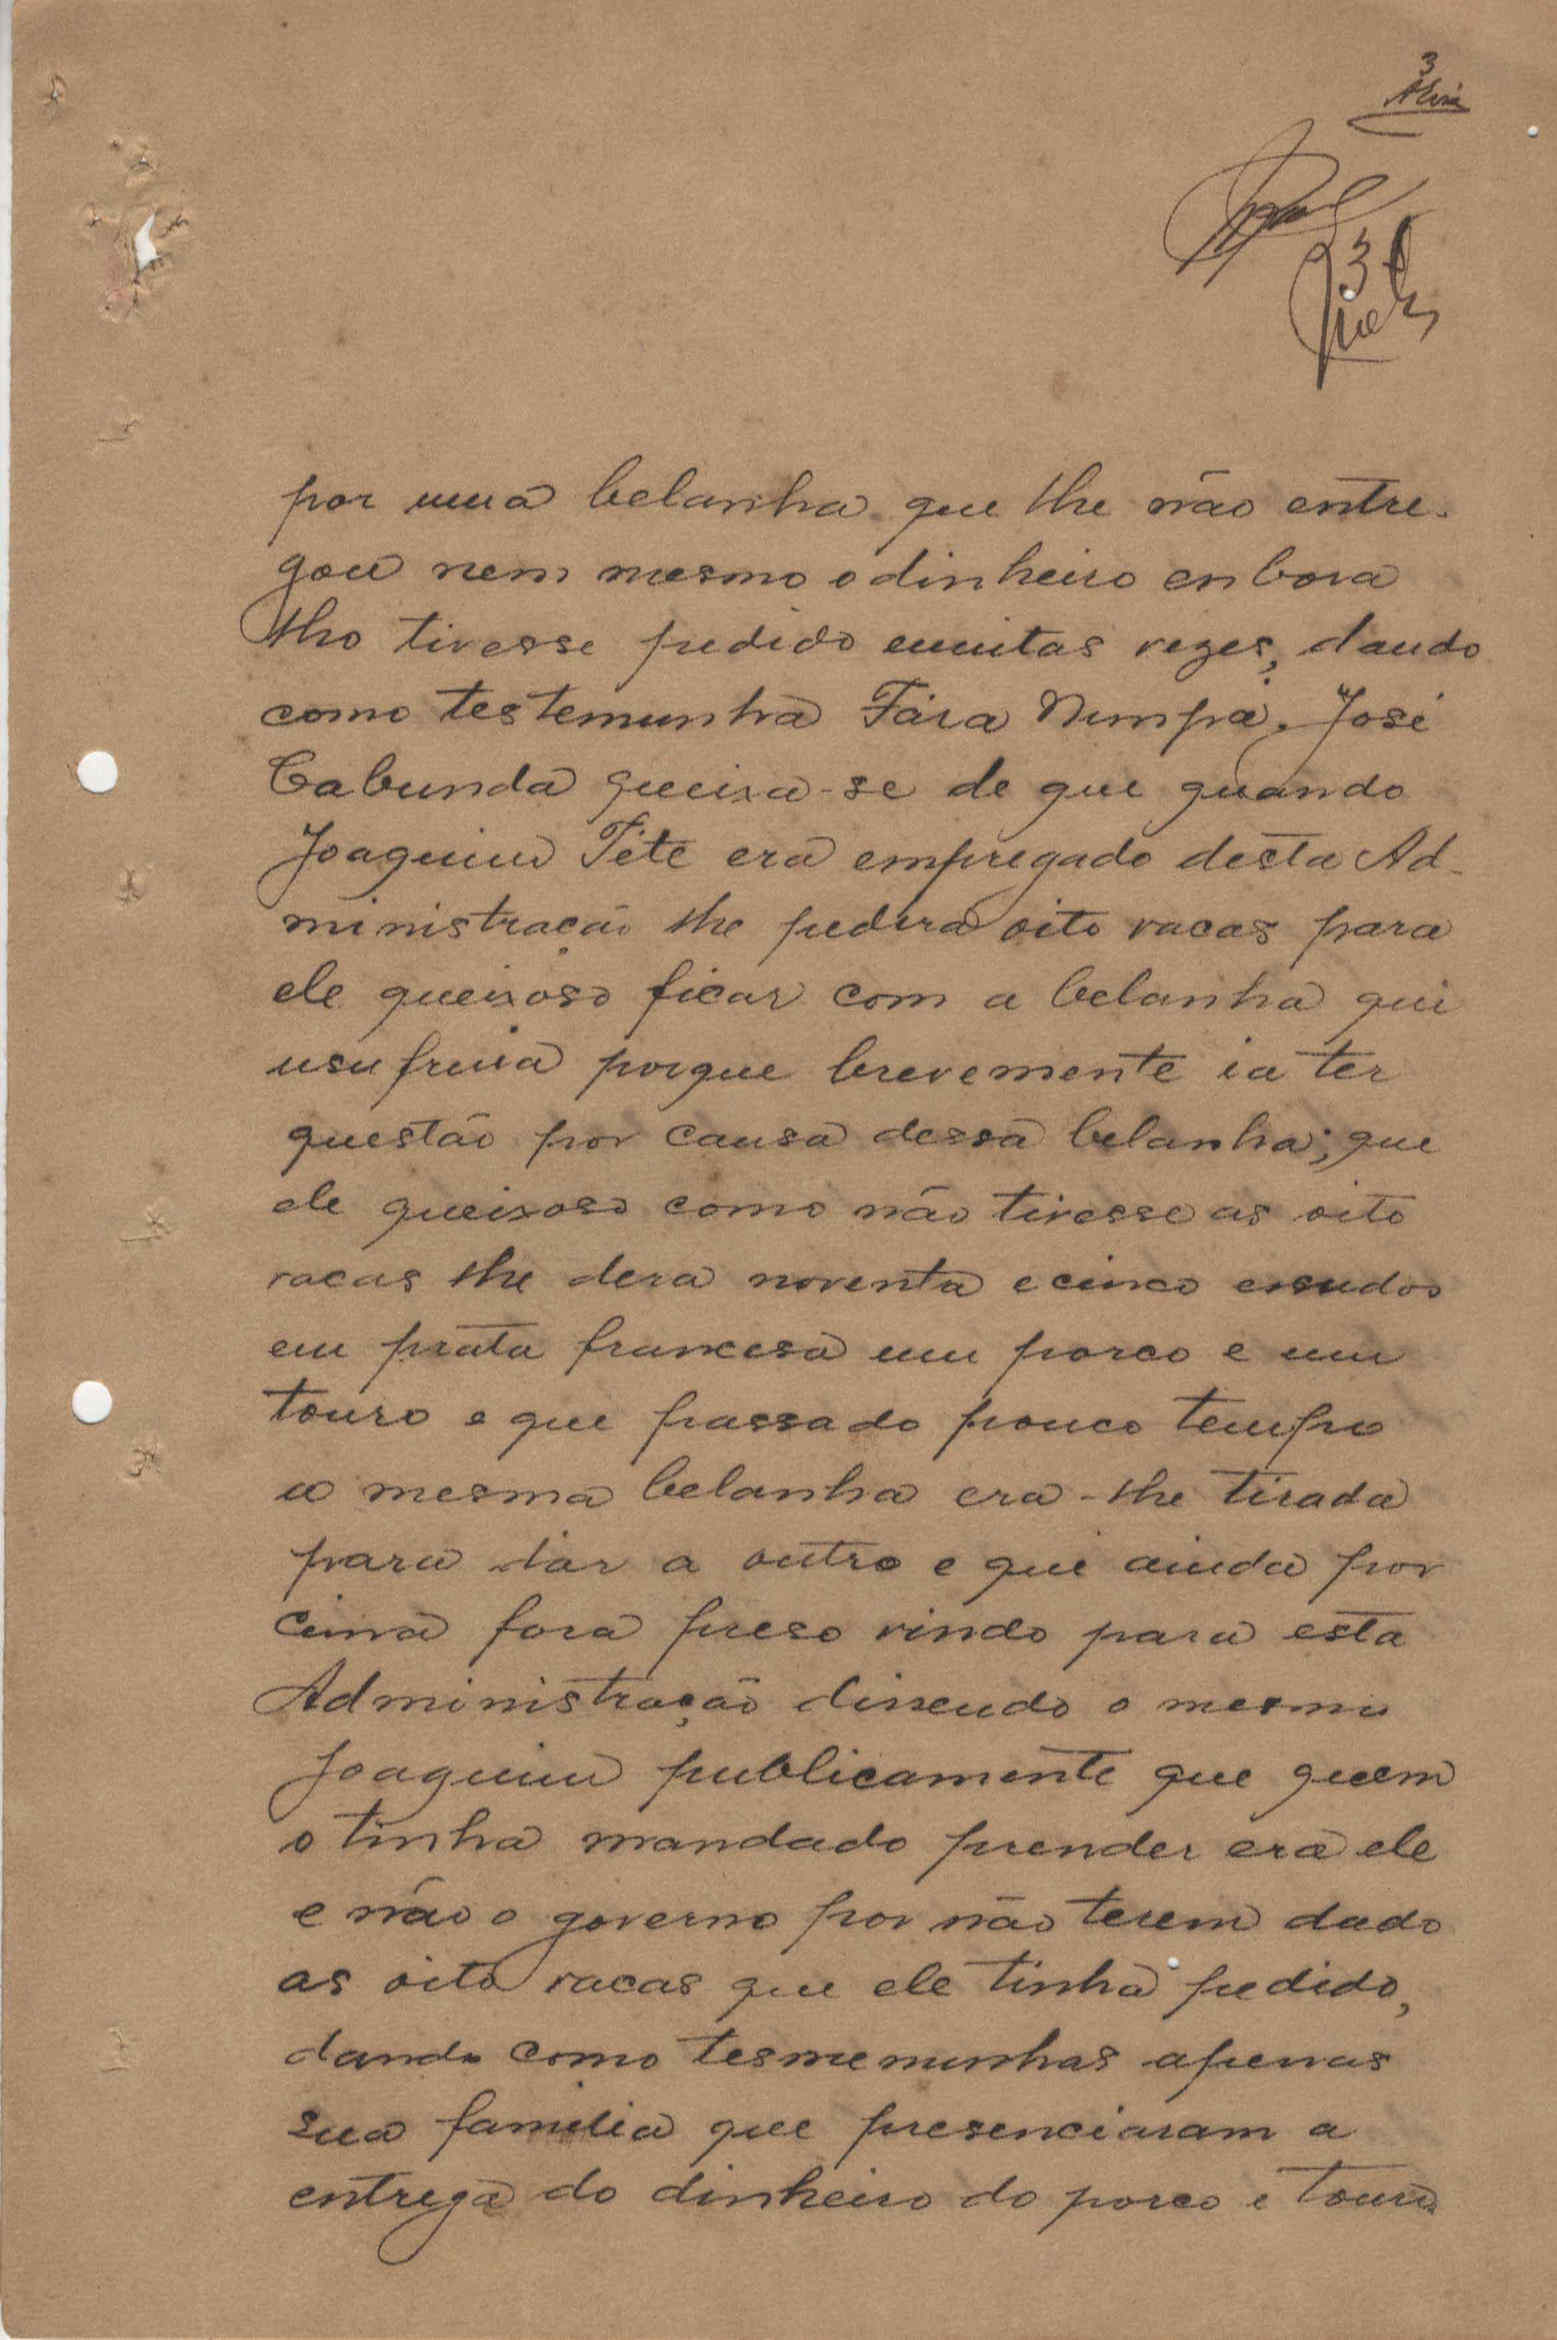 3
por uma belanha que lhe não entre-
gou nem mesmo o dinheiro enbora
lho tivesse pedido muitas vezes, dando
como testemunha Fára Nimpá. José
Cabunda queixa-se de que quando
Joaquim Téte era empregado desta Ad-
ministração lhe pedira oito vacas para
ele queixoso ficar com a belanha que
usufruia porque brevemente ia ter
questão por causa dessa belanha; que
ele queixoso como não tivesse as oito
vacas lhe dera noventa e cinco escudos
em prata francesa um porco e um
touro e que passado pouco tempo
a mesma belanha era-lhe tirada
para dar a outro e que ainda por
cima fora preso vindo para esta
Administração dissendo o mesmo
Joaquim publicamente que quem
o tinha mandado prender era ele
e não o governo por não terem dado
as oito vacas que ele tinha pedido,
dando como tesmemunhas apenas
sua familia que presenciaram a
entrega do dinheiro do porco e touro.